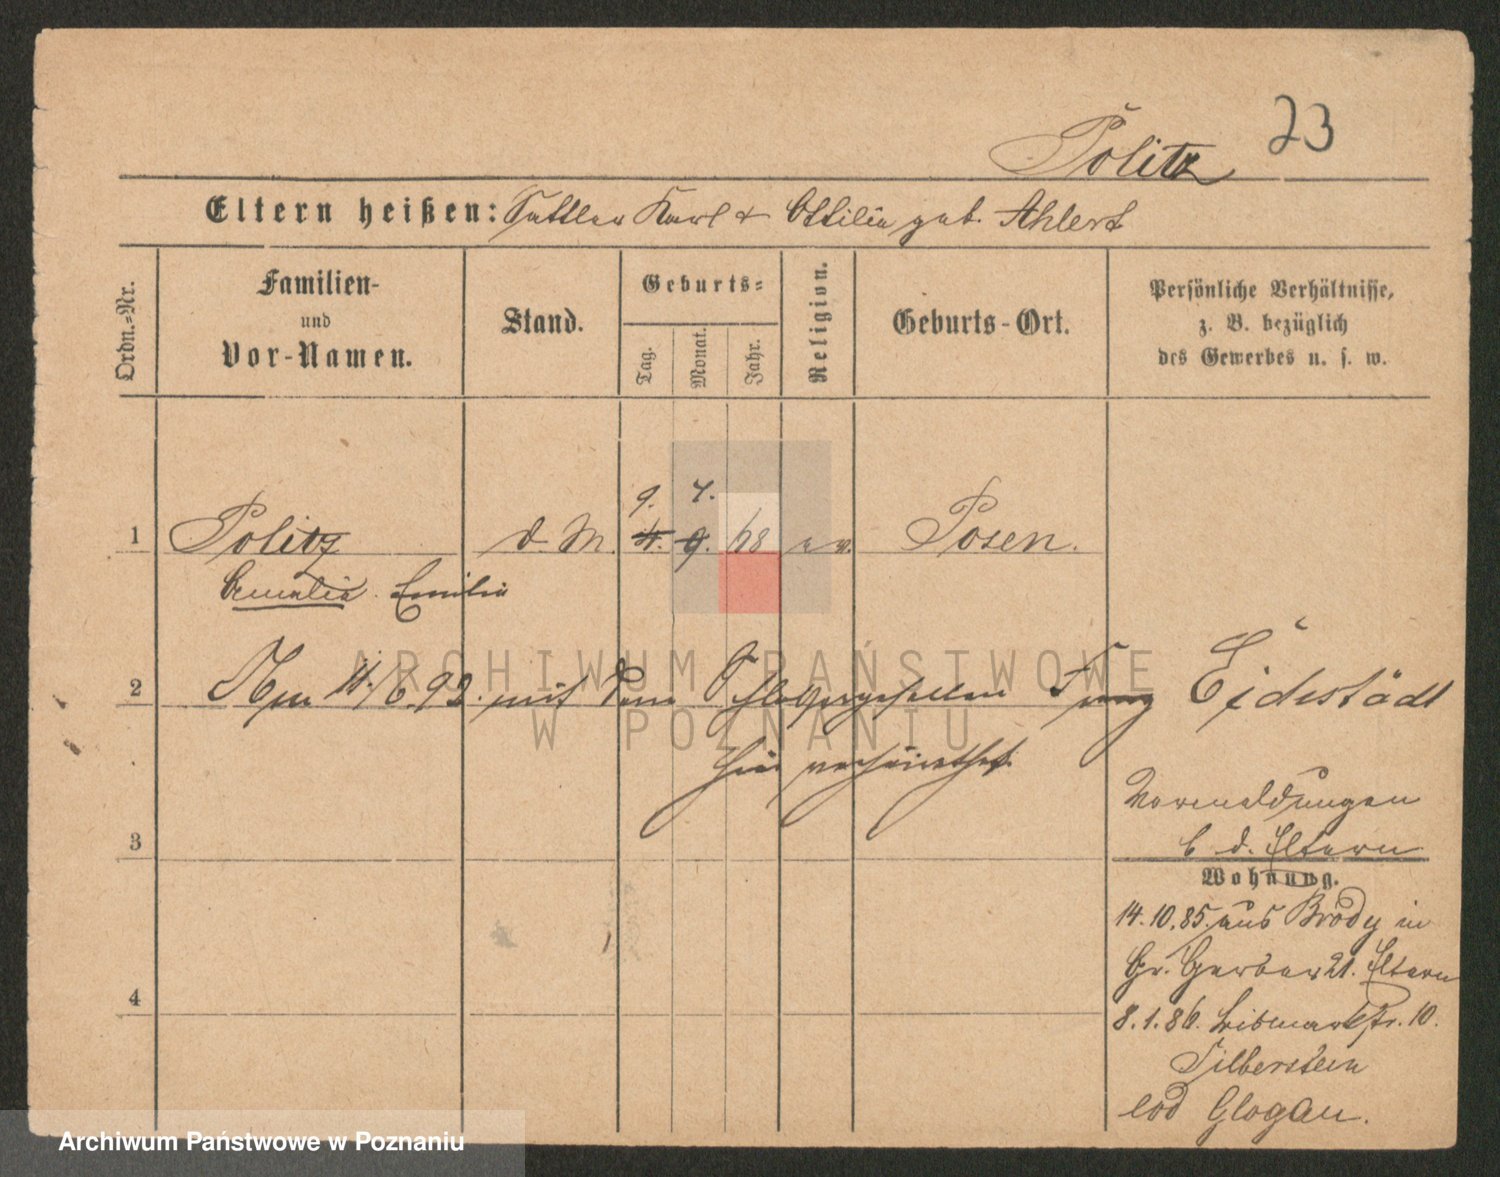 Politz 23
Eltern heißen: Sattler Karl & Ottilie geb. Ahlert
Ordn.-Nr.
Familien-
und
Vor-Namen.
Stand.
Geburts-
Tag. Monat. Jahr.
Religion.
Geburts-Ort.
Persönliche Verhältnisse,
z. B. bezüglich
des Gewerbes u. s. w.
9. 7.
1 Politz d. M. 4. 9. 68 ev. Posen.
Amalie Emilie
2 Am 11./6. 92. mit dem Eichstädt
hier verheirathet.
Vormeldungen
b. d. Eltern
3
Wohnung.
14.10.85. aus Brody in
Gr. Gerber 21. Eltern
4
8.1.86. Bismarckstr. 10.
Silberstein
eod Glogau.
ARCHIWUM PAŃSTWOWE
W POZNANIU
Archiwum Państwowe w Poznaniu